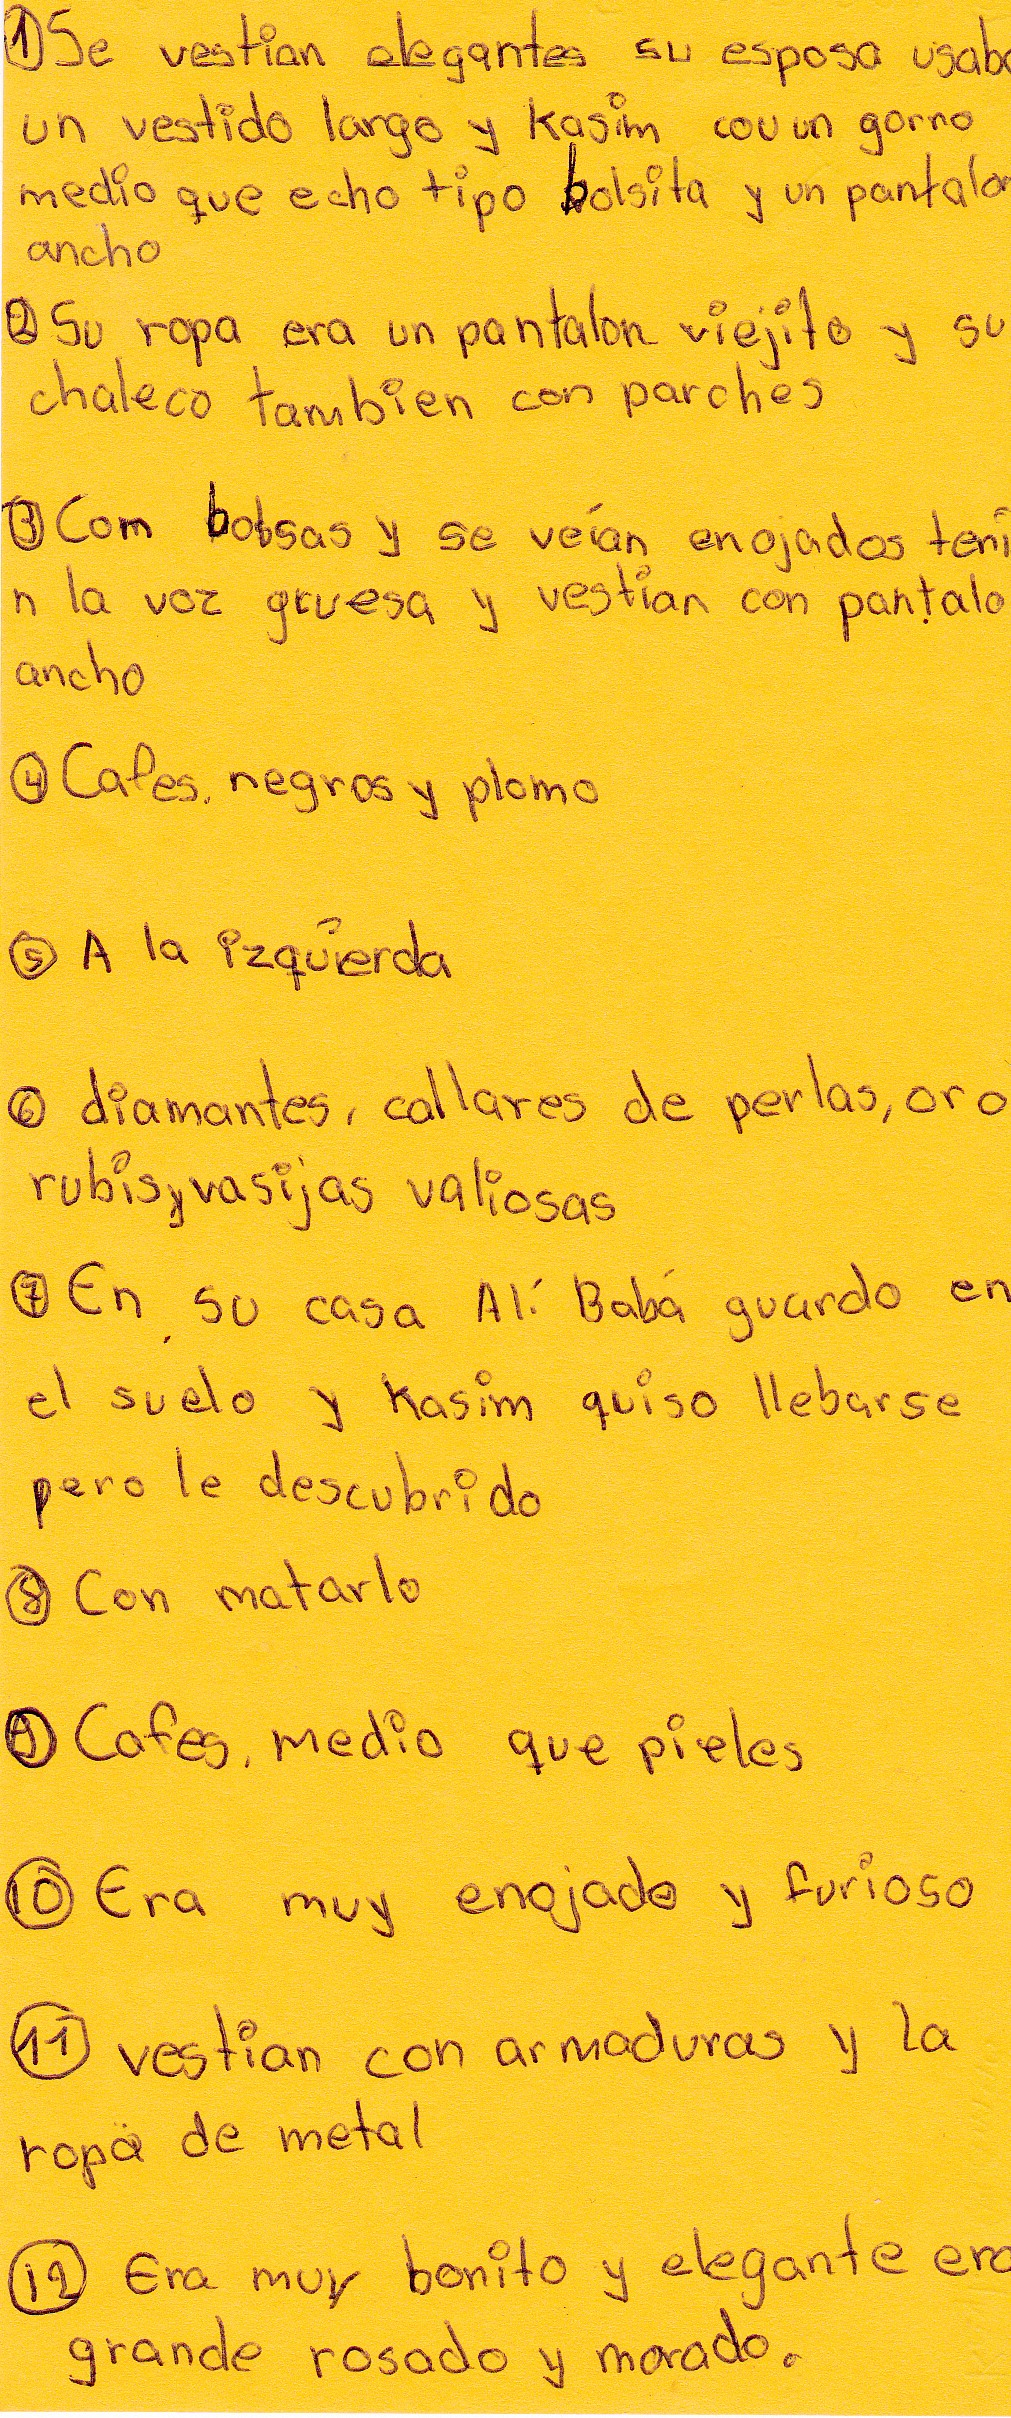 ① Se vestian elegantes su esposa usaba
un vestido largo y Kasim cou un gorro
medio que echo tipo bolsita y un pantalon
ancho
② Su ropa era un pantalon viejito y su
chaleco tambien con parches
③ Com bolsas y se veían enojados teni
n la voz gruesa y vestian con pantalo
ancho
④ Cafes, negros y plomo
⑤ A la izquierda
⑥ diamantes, collares de perlas, oro
rubis y vasijas valiosas
⑦ En su casa Alí Babá guardo en
el suelo y Kasim quiso llebarse
pero le descubrido
⑧ Con matarlo
⑨ Cafes, medio que pieles
⑩ Era muy enojado y furioso
⑪ vestian con armaduras y la
ropa de metal
⑫ Era muy bonito y elegante era
grande rosado y morado.